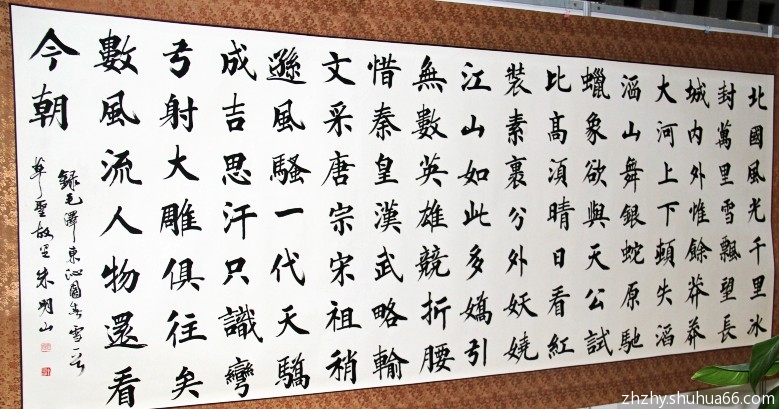 北國風光千里冰
封萬里雪飄望長
城内外惟餘莽莽
大河上下頓失滔
滔山舞銀蛇原馳
蠟象欲與天公試
比高須晴日看紅
裝素裹分外妖嬈
江山如此多嬌引
無數英雄競折腰
惜秦皇漢武略輸
文采唐宗宋祖稍
遜風騷一代天驕
成吉思汗只識彎
弓射大雕俱往矣
數風流人物還看
今朝
録毛澤東沁園春雪一首
草聖故里朱明山
zhzhy.shuhua66.com